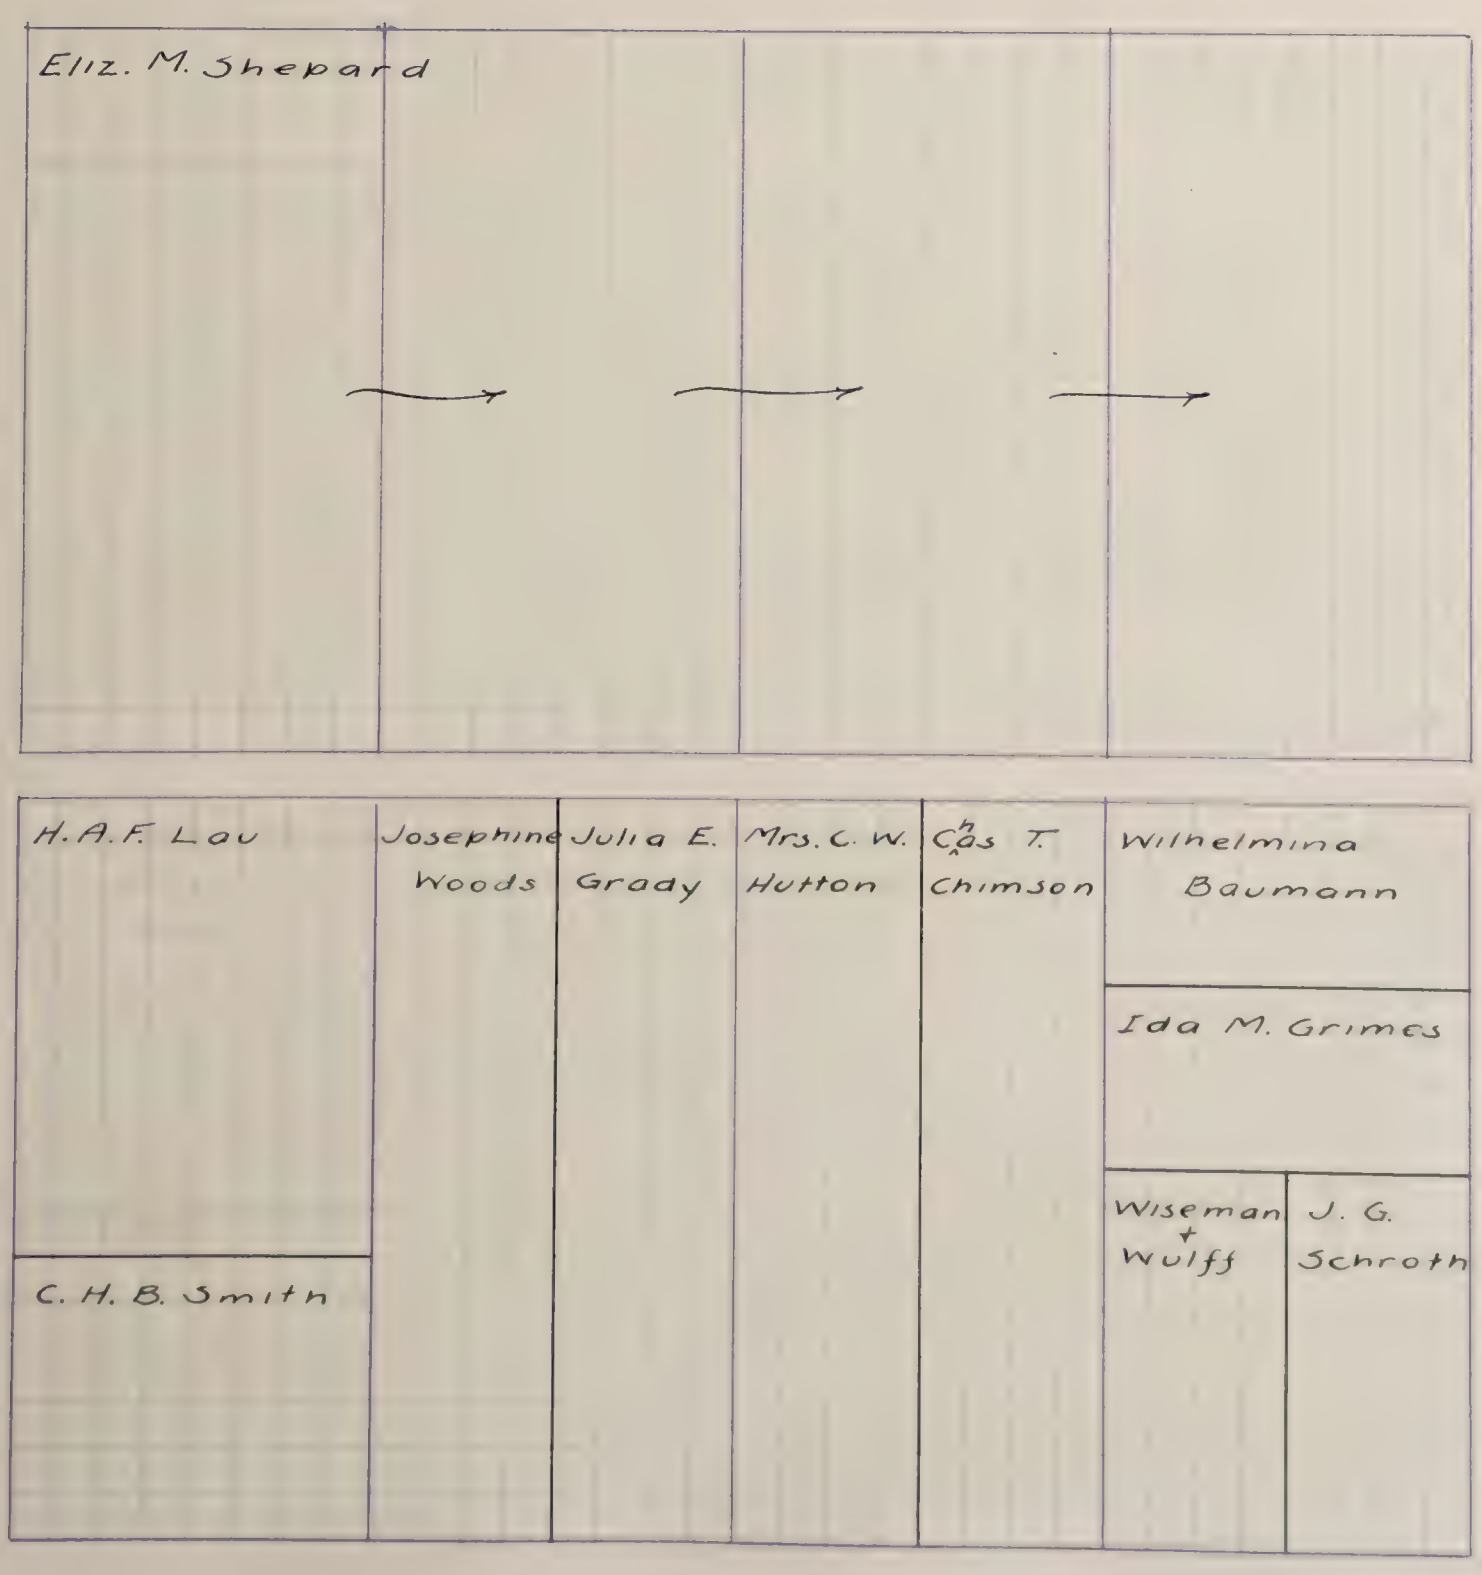 Eliz. M. Shepard
H. A. F. Lau
Josephine
Woods
Julia E.
Grady
Mrs. C. W.
Hutton
Chas T.
Chimson
Wilhelmina
Baumann
Ida M. Grimes
Wiseman
+
Wulff
J. G.
Schroth
C. H. B. Smith